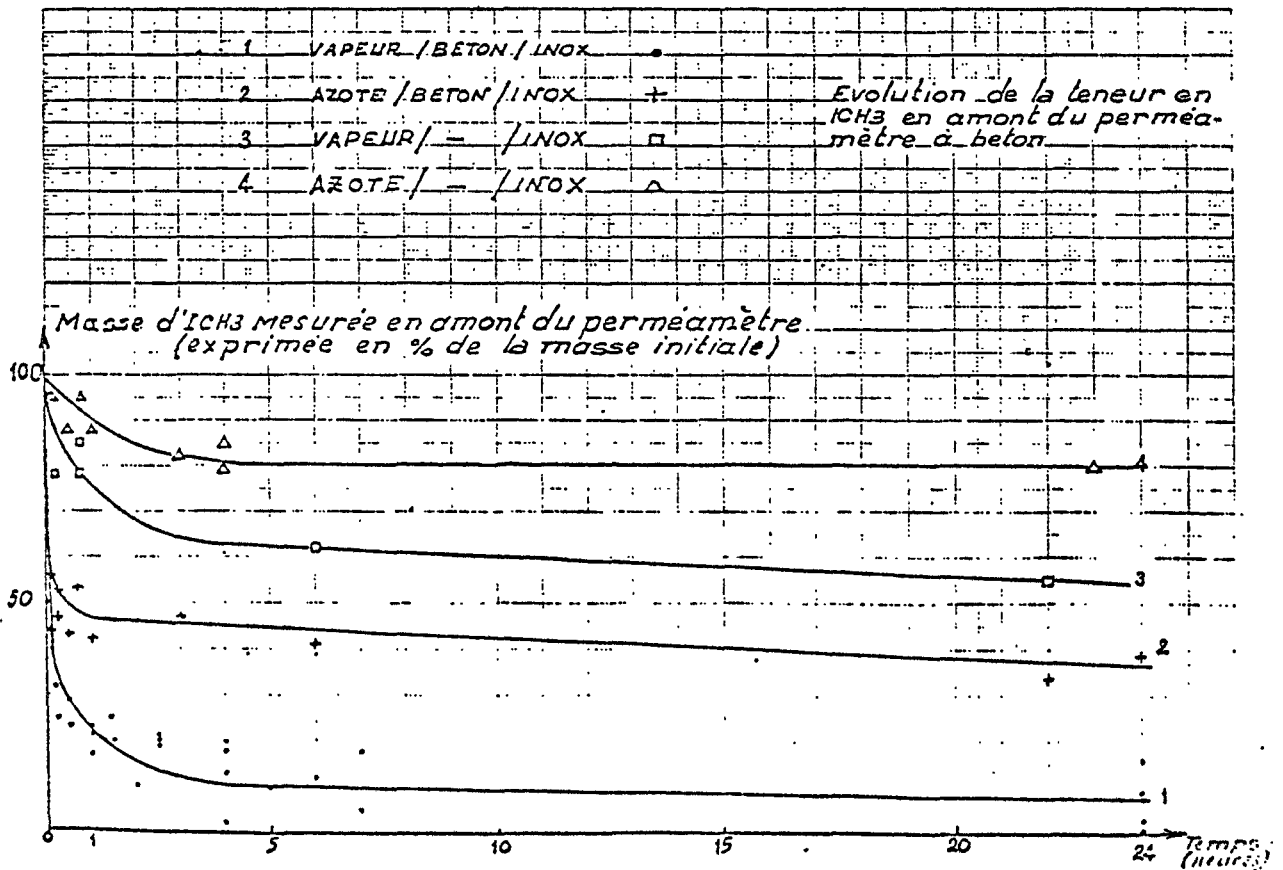 1 VAPEUR / BETON / INOX
2 AZOTE / BETON / INOX +
3 VAPEUR / — / INOX
4 AZOTE / — / INOX
Evolution de la teneur en
ICH3 en amont du perméa-
mètre à beton
Masse d'ICH3 Mesurée en amont du perméamètre
(exprimée en % de la masse initiale)
100
50
4
3
2
1
0 1 5 10 15 20 24
Temps
(heures)